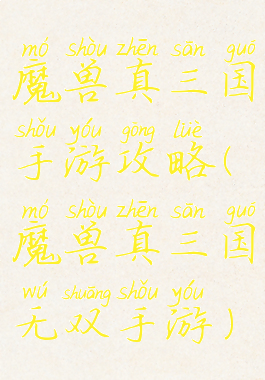 mó shòu zhēn sān guó
魔兽真三国
shǒu yóu gōng lüè
手游攻略(
mó shòu zhēn sān guó
魔兽真三国
wú shuāng shǒu yóu
无双手游)